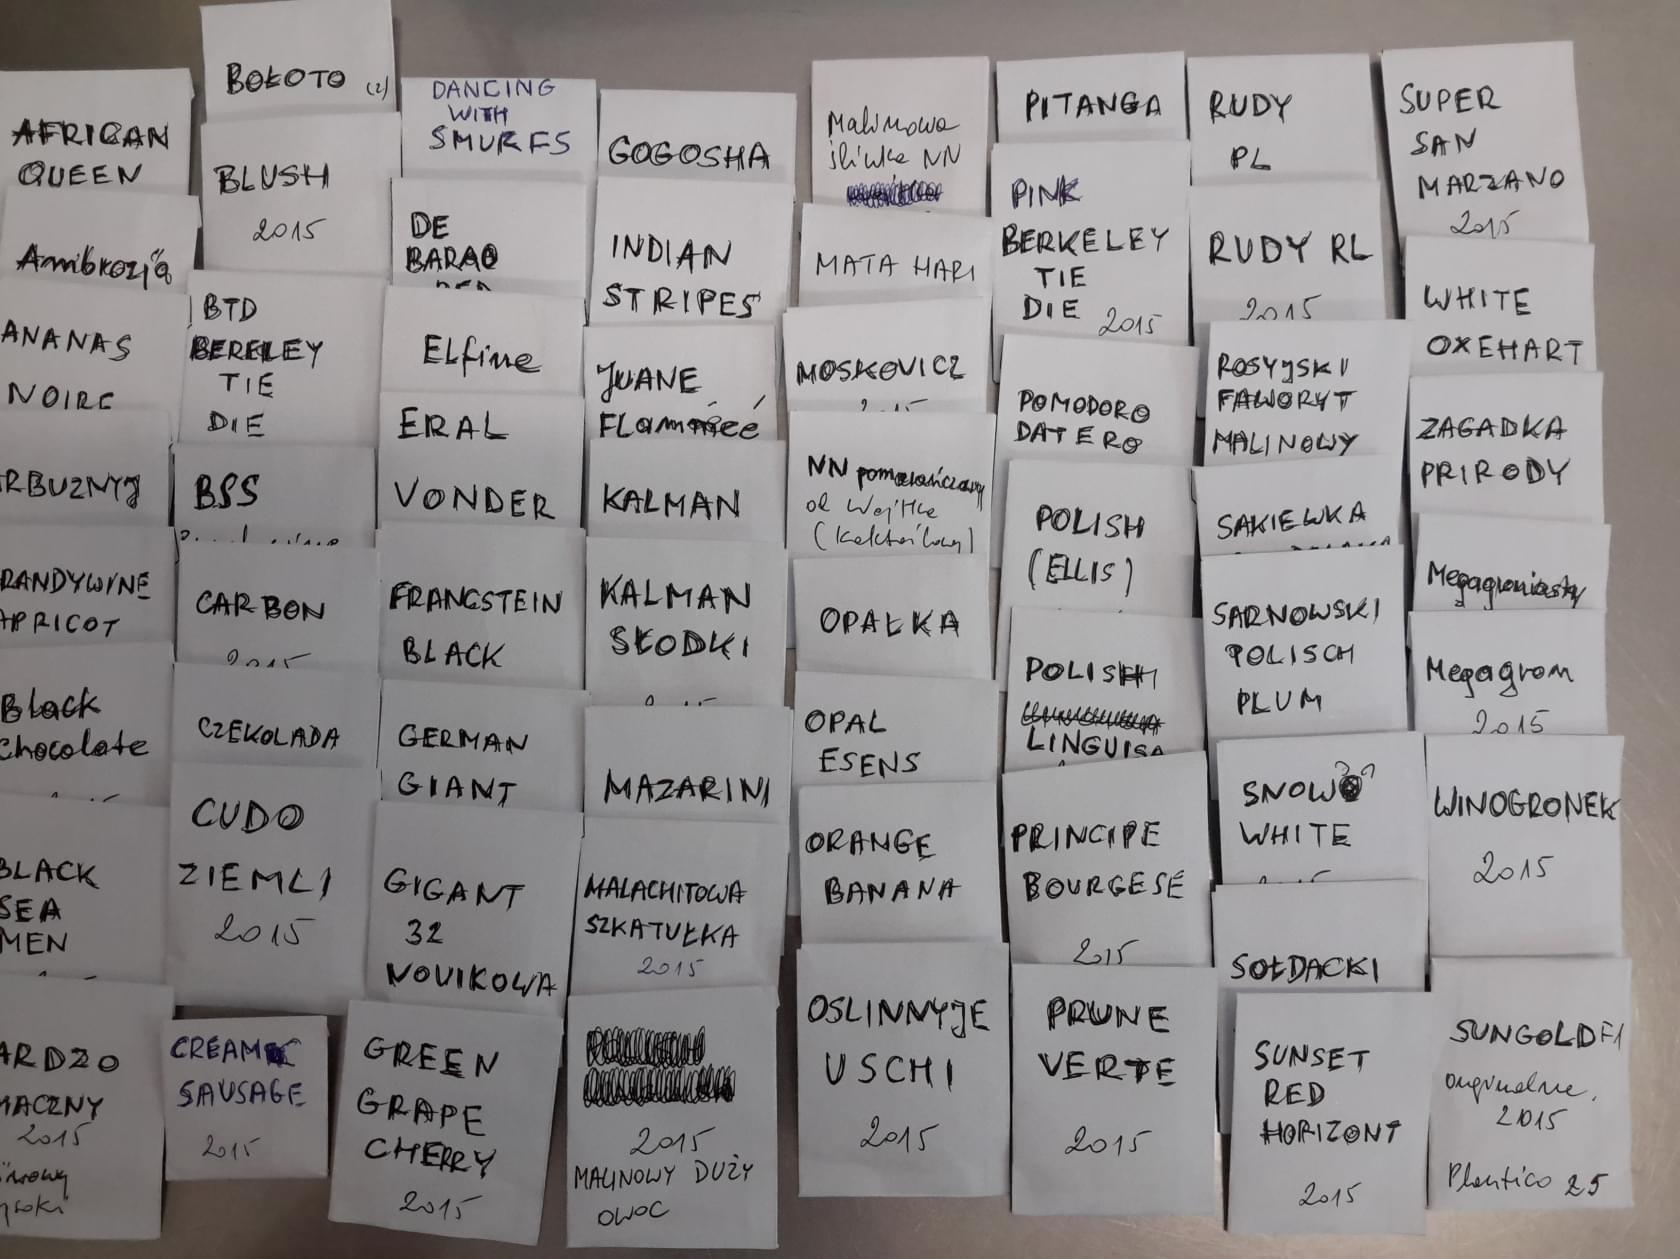 AFRICAN
QUEEN
Ambrozja
ANANAS
NOIRE
RBUZNYJ
RANDYWINE
APRICOT
Black
Chocolate
BLACK
SEA
MEN
ARDZO
MACZNY
2015
BOŁOTO (2)
BLUSH
2015
BTD
BERKLEY
TIE
DIE
BSS
CARBON
2015
CZEKOLADA
CUDO
ZIEMLI
2015
CREAM
SAUSAGE
2015
DANCING
WITH
SMURFS
DE
BARAO
RED
Elfine
ERAL
VONDER
FRANGSTEIN
BLACK
GERMAN
GIANT
GIGANT
32
NOVIKOWA
GREEN
GRAPE
CHERRY
2015
GOGOSHA
INDIAN
STRIPES
JUANE
FLammeé
KALMAN
KALMAN
SŁODKI
MAZARINI
MALACHITOWA
SZKATUŁKA
2015
2015
MALINOWY DUŻY
OWOC
Malinowa
śliwka NN
MATA HARI
MOSKOVICZ
2015
NN pomarańczowy
od Wojtka
(koktailowy)
OPAŁKA
OPAL
ESENS
ORANGE
BANANA
OSLINNYJE
USCHI
2015
PITANGA
PINK
BERKELEY
TIE
DIE 2015
POMODORO
DATERO
POLISH
(ELLIS)
POLISH
LINGUISA
PRINCIPE
BOURGESE
2015
PRUNE
VERTE
2015
RUDY
PL
RUDY RL
2015
ROSYJSKI
FAWORYT
MALINOWY
SAKIEWKA
SARNOWSKI
POLISCH
PLUM
SNOW ??
WHITE
2015
SOŁDACKI
SUNSET
RED
HORIZONT
2015
SUPER
SAN
MARZANO
2015
WHITE
OXEHART
ZAGADKA
PRIRODY
Megagroniasty
Megagron
2015
WINOGRONEK
2015
SUNGOLD F1
oryginalne.
2015
Plantico 25